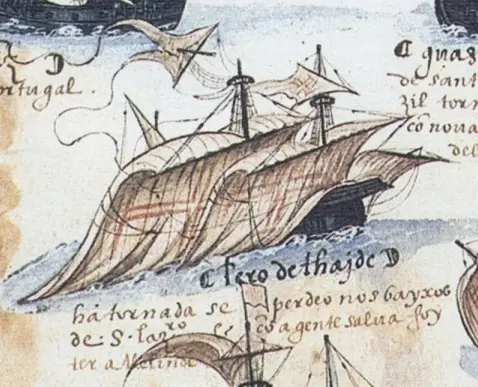 ortugal.
¶ quas
de sant
zil torn
cō nova
del
¶ Pero de thajde
há tornada se perdeo nos bayxos
de S. lazro e cō a gente salva foy
ter a Melinde